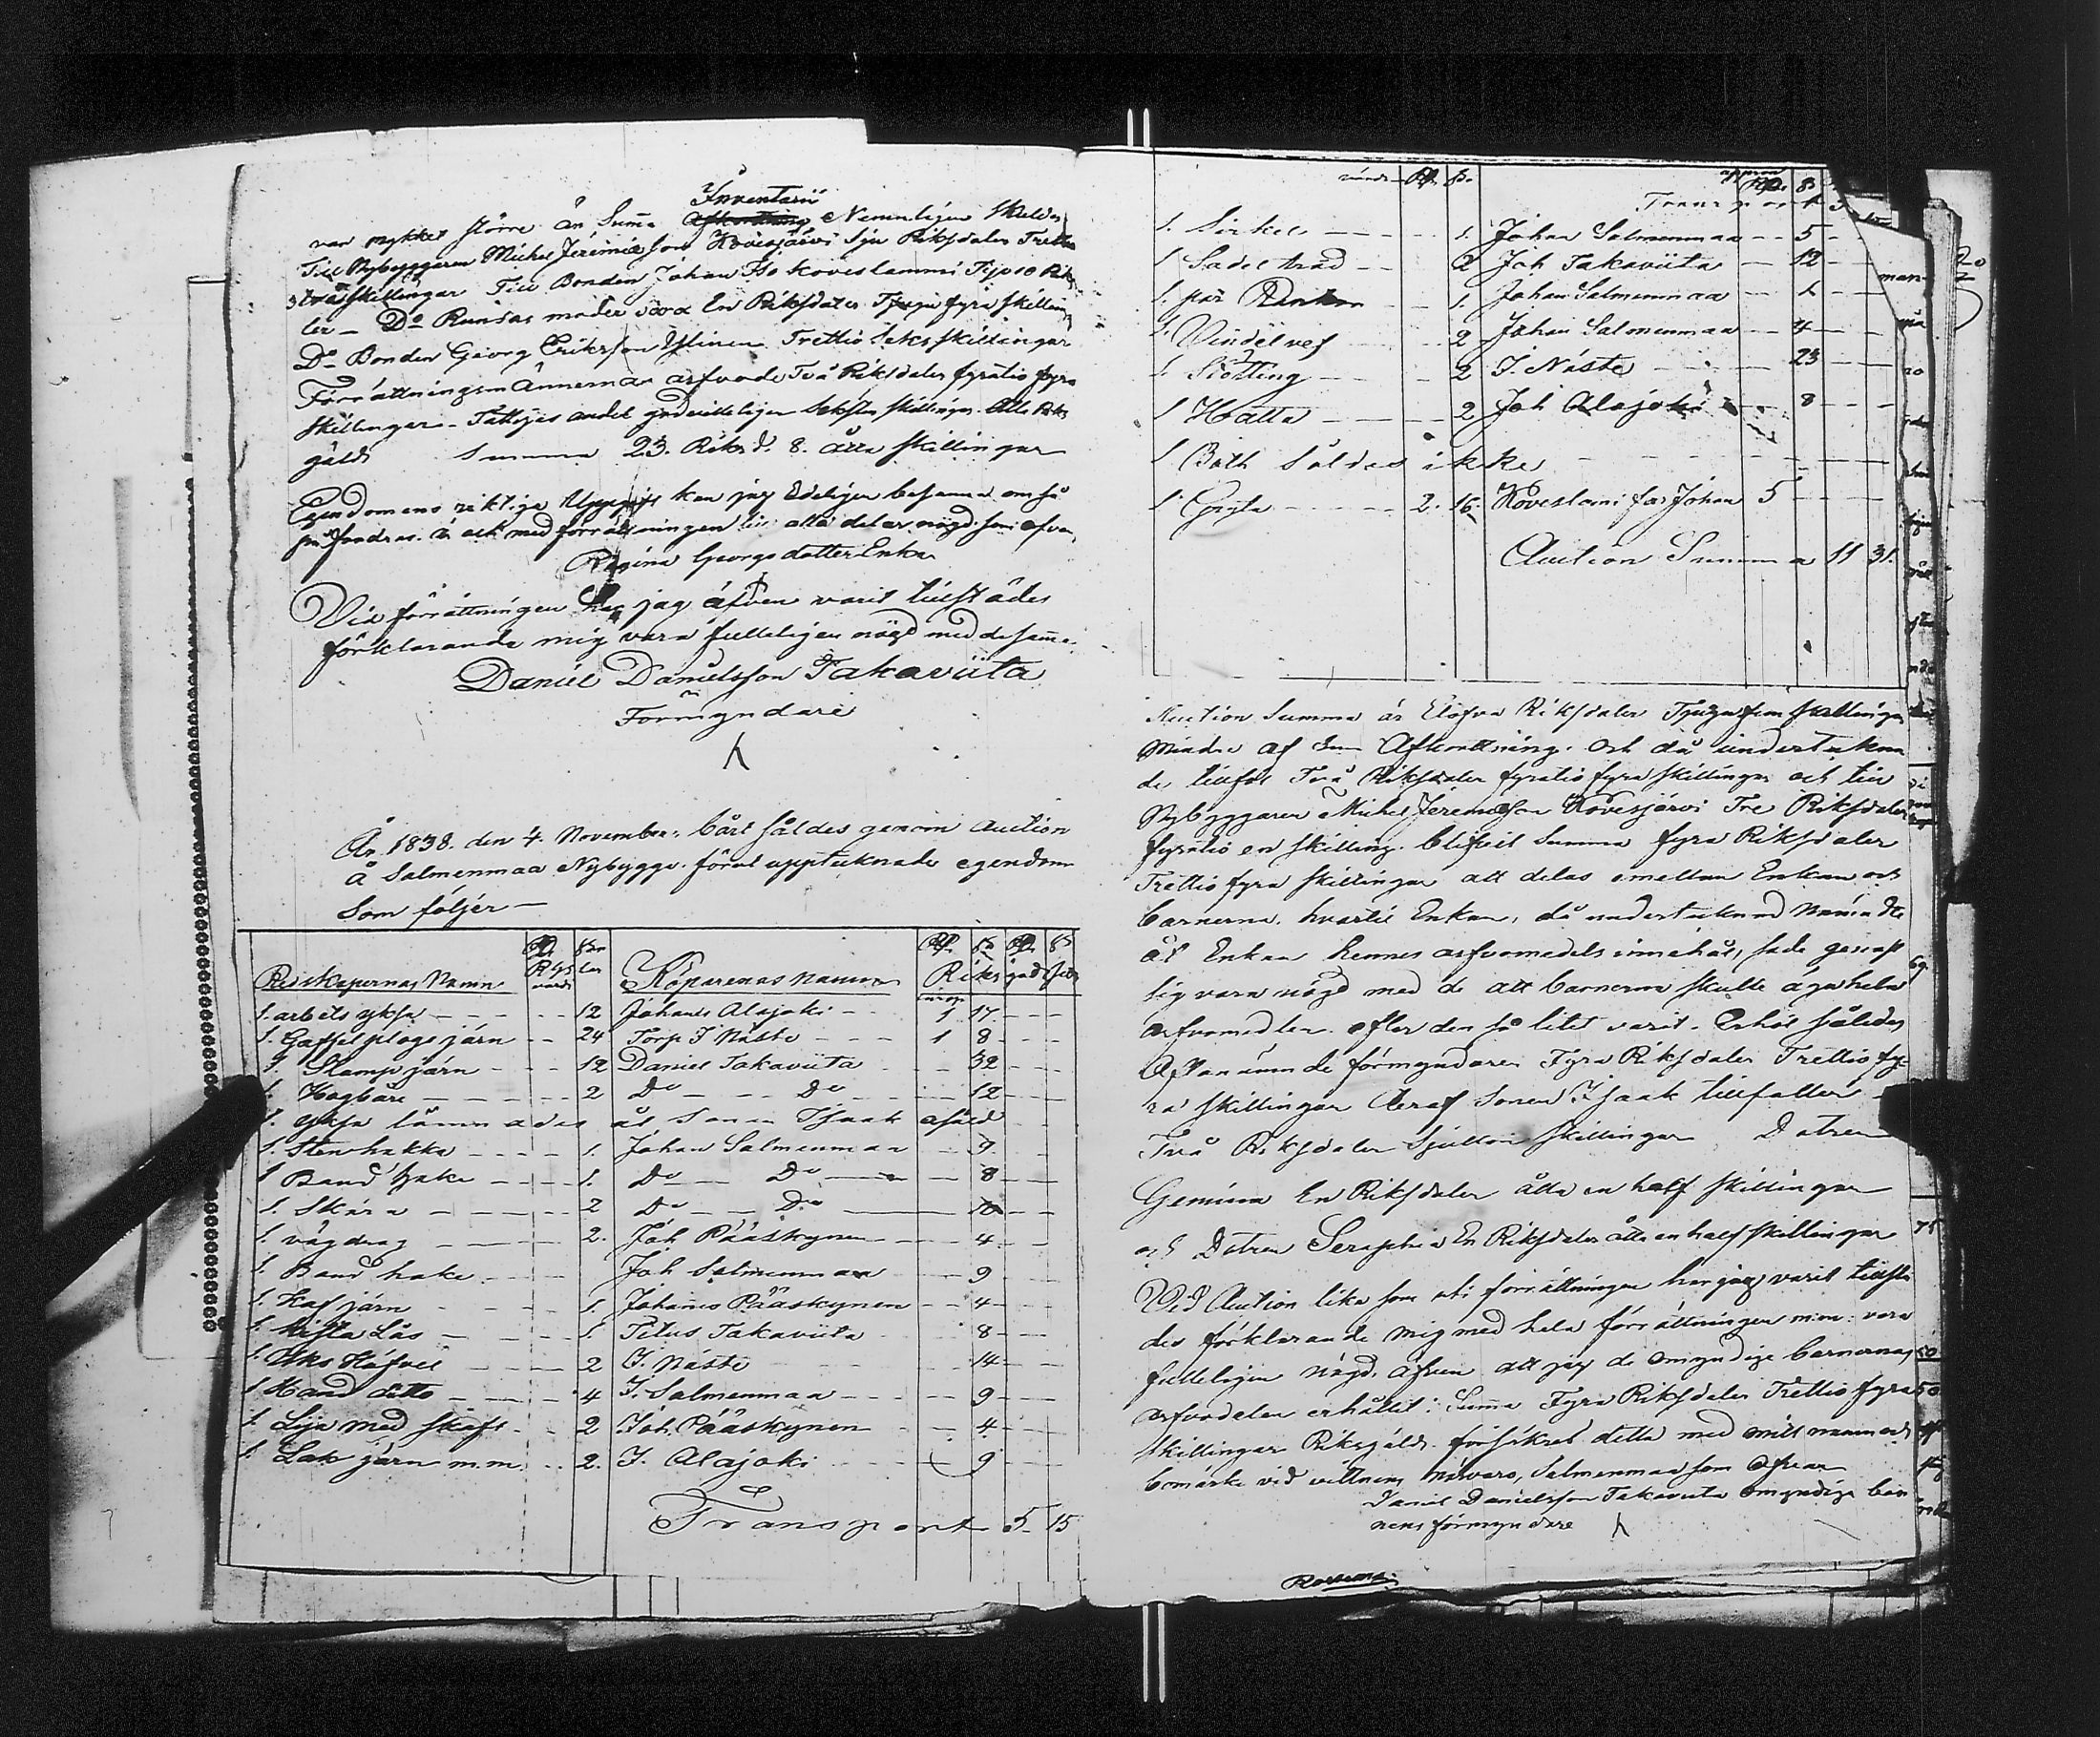 Inventarii
var mykket större än Suma Nemmligen Skulder
Till Nybyggaren Michel Jeremiæson Kovesjärvi Sju Riksdaler Trettio
två Skillingar Till Bonden Johan Iso koveslammi Tijo 10 Riks
ler – Do Runsas moder En Riksdaler Tjugu fyra Skilling
Do Bonden Georg Eriksson Ylinen Trettio Seks Skillingar
Förrättningsmännernas arfvode Två Riksdaler fyratio fyra
Skillingar – Fattigas andel godvilleligen Sekston Skillingar. Alla Riks
gäld Summa 23. Riksd. 8. åtta Skillingar
Egendomens riktiga Uppgift kan jag Edeligen besanna om så
fordras är ock med förrättningen till alla delar nögd som ofvan,
Regina Georgsdotter Enka
Vid förrättningen har jag äfven varit tillstädes
förklarande mig vara fulleligen nögd med desamma.
Daniel Danielsson Takaviita
Förmyndare
År 1838. den 4. November. bårt såldes genom Auction
å Salmenmaa Nybygge. förut upptecknade egendom
Som följer –
Redskapernas Namn Rd Rigs värde Köparenas namn Riks gäld
1. arbets yksa 12 Johanes Alajoki 1 17
1. Gaffel plogs järn 24 Torp J Näste 1 8
1. Stamp järn 12 Daniel Takaviita 32
1. Hogbåre 2 Do Do 12
1. yksa lämnades åt Sonen Isaak osåld
1. Sten hakka 1. Johan Salmenmaa 9
1 Band hake 1. Do Do 8
1. Skära 2 Do Do
1. vågdrag 2. Joh Pääskynen 4
1. Band hake Joh Salmenmaa 9
1. Kaf järn 1. Johanes Pääskynen 4
1. kista Lås 1 Titus Takaviita 8
1. Uks Häfvel 2 J. Näste 14
1 Hand ditto 4 J. Salmenmaa 9
1. Lija med Skaft 2 Joh. Pääskynen 4
1. Lok järn m.m. 2. J. Alajoki 9
Transport 5. 15
Transport
1. Sirkel 1. Johan Salmenmaa 5
1 Sadel träd 2 Joh Takaviita 12
1. par 1. Johan Salmenmaa
1. Vindelvef 2 Johan Salmenmaa 4
1. Stötting 2 J. Näste 23
1 Hatta 2 Joh Alajoki 8
1 Båth Såldes ikke
1. Gryta 2. 16. Koveslami far Johan 5
Auction Summa 11 31.
Auction Summa är Elofva Riksdaler Tjugufem skillingar
Mindre af Afkorttning. och då undertekna
de tillfal Två Riksdaler fyratio fyra Skillingar och till
Nybyggaren Michel Jeremiæson Kovesjärvi Tre Riksdaler
fyratio en skilling. blifvit Summa fyra Riksdaler
Trettio fyra skillingar att delas emellan Enkan och
barnerna. hvartil Enkan, då undertecknad nämnde
åt Enkan hennes arfvomedels innehål, sade genast
sig vara nögd med de att barnerna skulle äga hela
arfvomedlen. efter den så litet varit. Erhöl således
Ofvannämde förmyndaren Fyra Riksdaler Trettio fy-
ra skillingar deraf Sonen Isaak tillfaller
Två Riksdaler Sjutton Skillingar Dotren
Gemina En Riksdaler åtta en half skillingar
och Dotren Seraphia En Riksdaler åtta en half skillingar
Vid Auction lika som uti förrättningen har jag varit tillstä
des förklarande mig med hela förrättningen m.m. vara
fulleligen nögd. äfven att jag de omyndige barnernas
arfvodelen erhållit: Suma Fyra Riksdaler Trettio fyra
Skillingar Riksgäld. försäkras detta med mitt namn och
bomärke vid vittnens närvaro, Salmenmaa som ofvan
Daniel Danielsson Takaviita omyndige bar
nens förmyndare